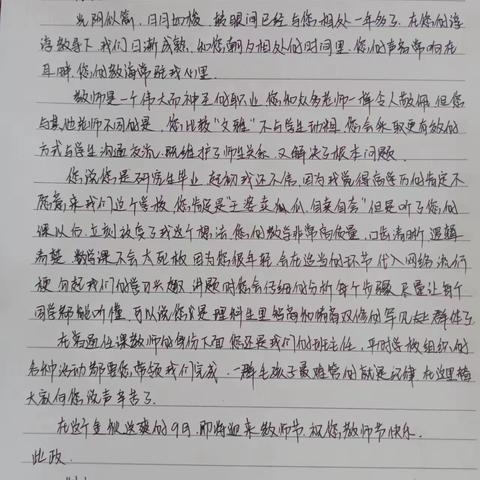 光阴似箭，日月如梭，转眼间已经与您相处一年多了。在您的谆
谆教导下，我们日渐成熟，和您朝夕相处的时间里，您的声音常响在
耳畔，您的教诲常驻我心里。
教师是一个伟大而神圣的职业，您和众多老师一样令人敬佩，但您
与其他老师不同的是，您比较“文雅”，不与学生动粗，您会采取更有效的
方式与学生沟通交流，既维护了师生关系，又解决了根本问题。
您说您是研究生毕业，起初我还不信，因为我觉得高学历的肯定不
愿意来我们这个学校，您肯定是“王婆卖瓜，自卖自夸”但是听了您的
课以后，立刻放弃了我这个想法，您的教学非常高质量，口齿清晰，逻辑
清楚，数学课不会太死板，因为您很年轻，会在适当的环节代入网络流行
梗，勾起我们的学习兴趣，讲题时您会仔细的分析每个步骤，尽量让每个
同学都能听懂，可以说您是理科生里智商和情商双倍的罕见群体了
在普通任课教师的身份下面，您还是我们的班主任，平时学校组织的
各种活动都要您带领我们完成，一群毛孩子最难管的就是纪律，在这里替
大家向您说声辛苦了。
在这个金秋送爽的9月，即将迎来教师节，祝您教师节快乐。
此致